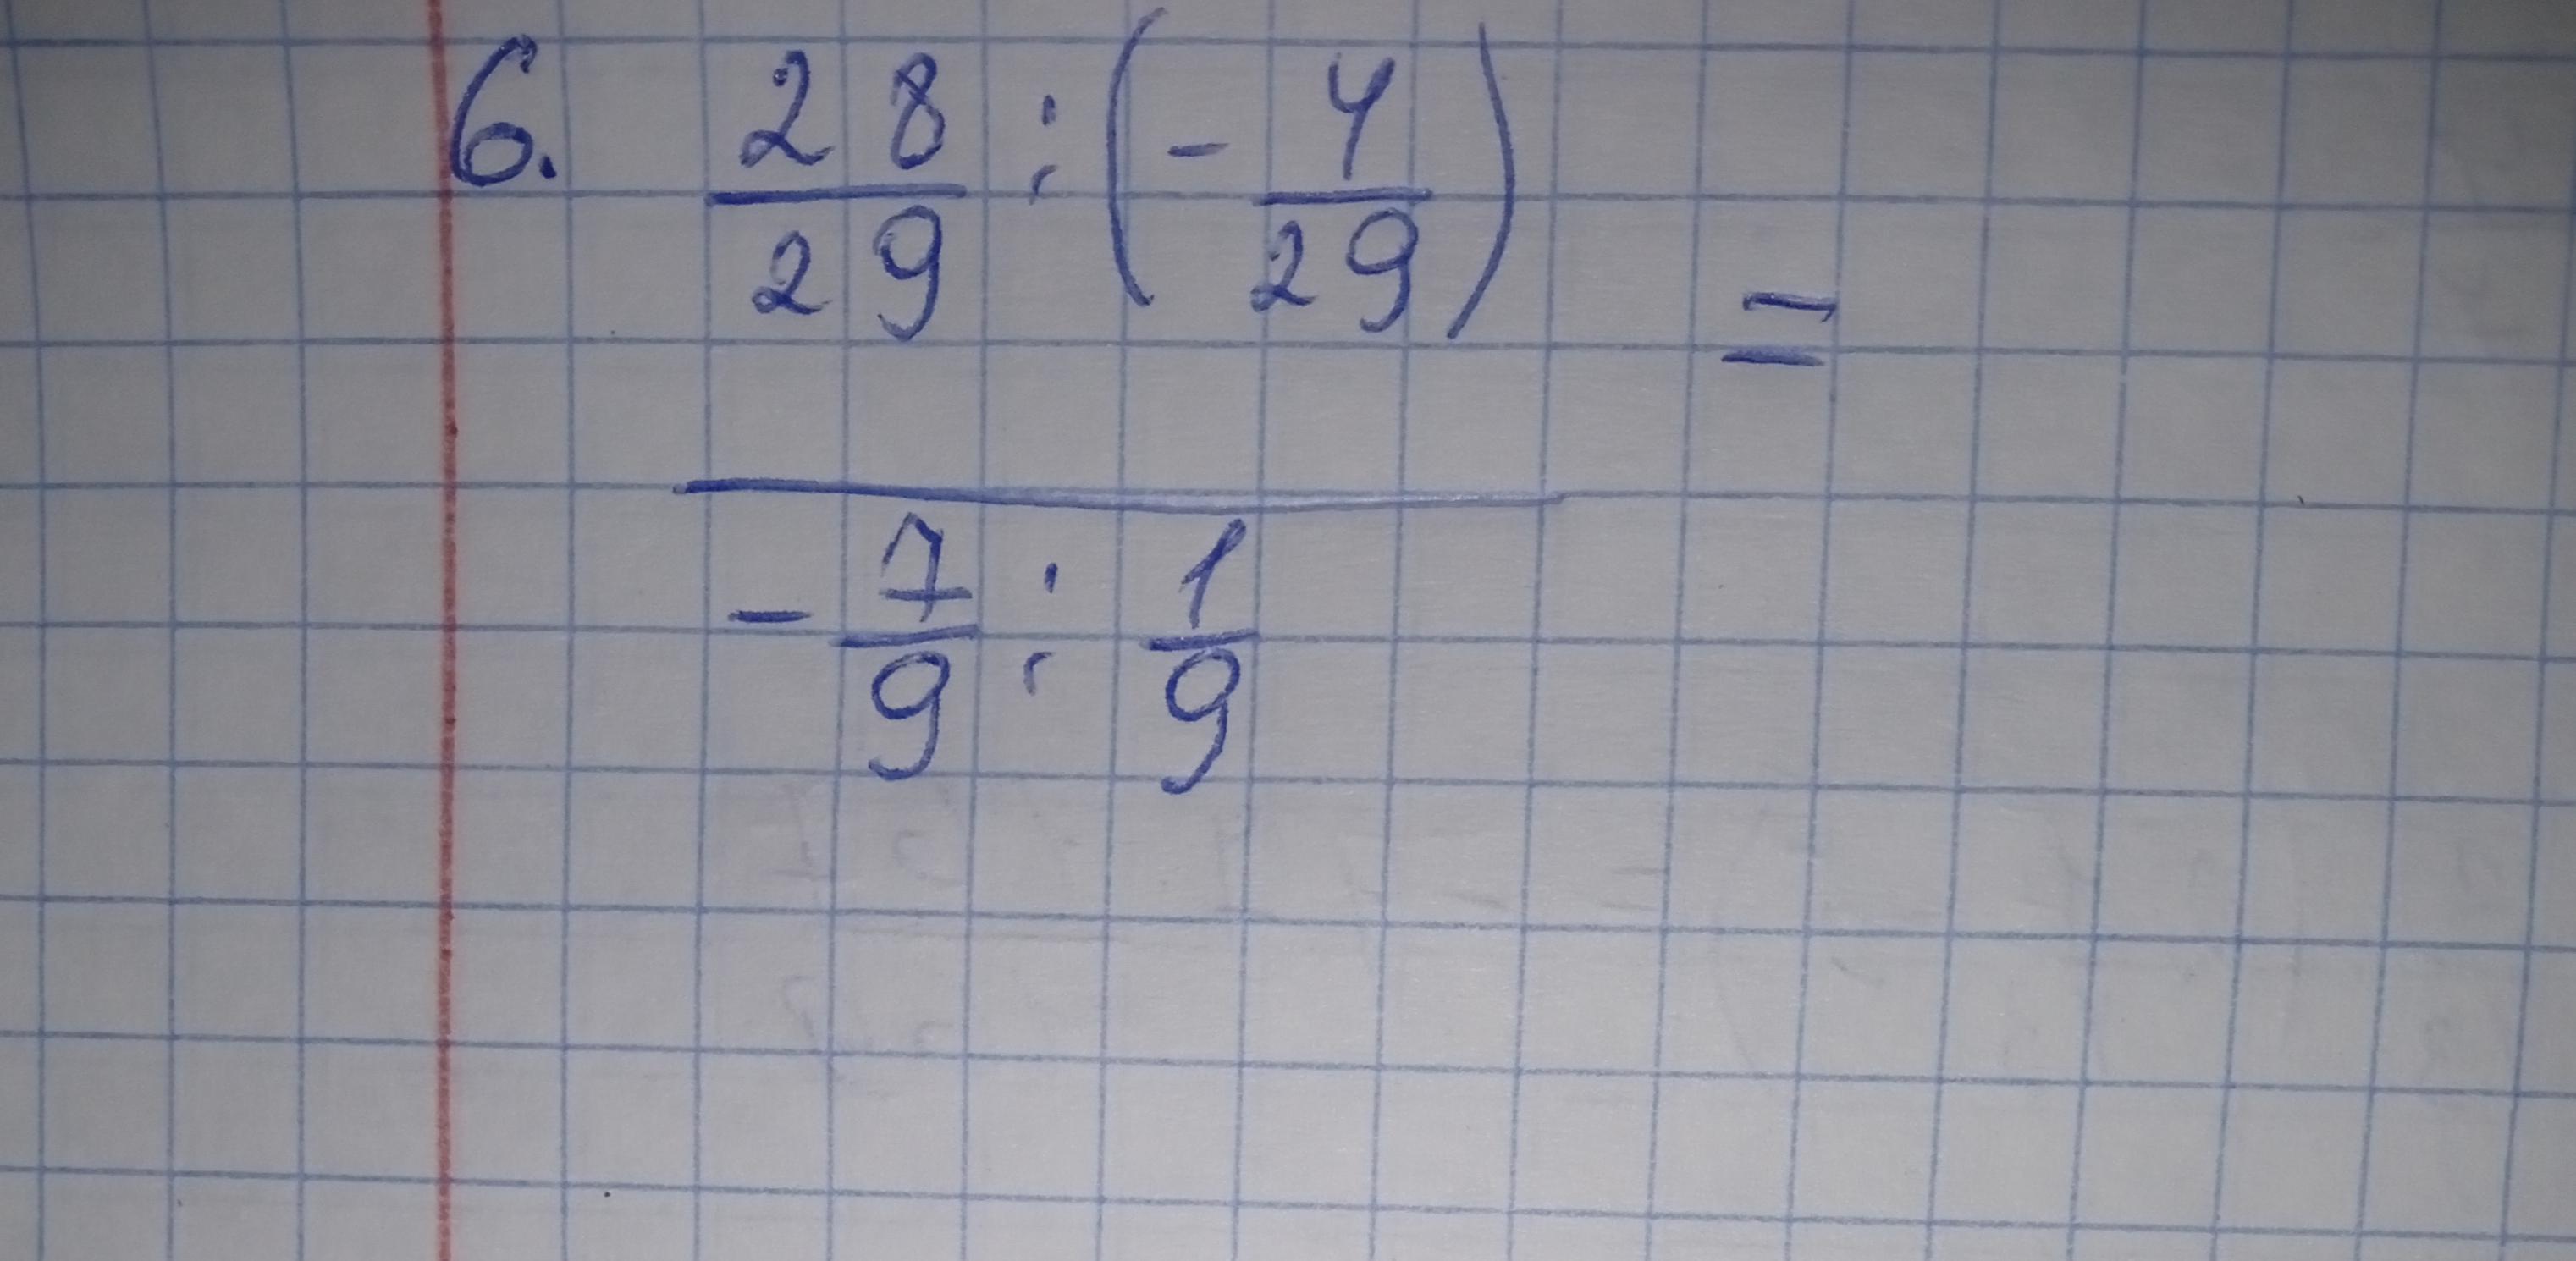 6. 28/29 : (- 4/29) =
- 7/9 : 1/9